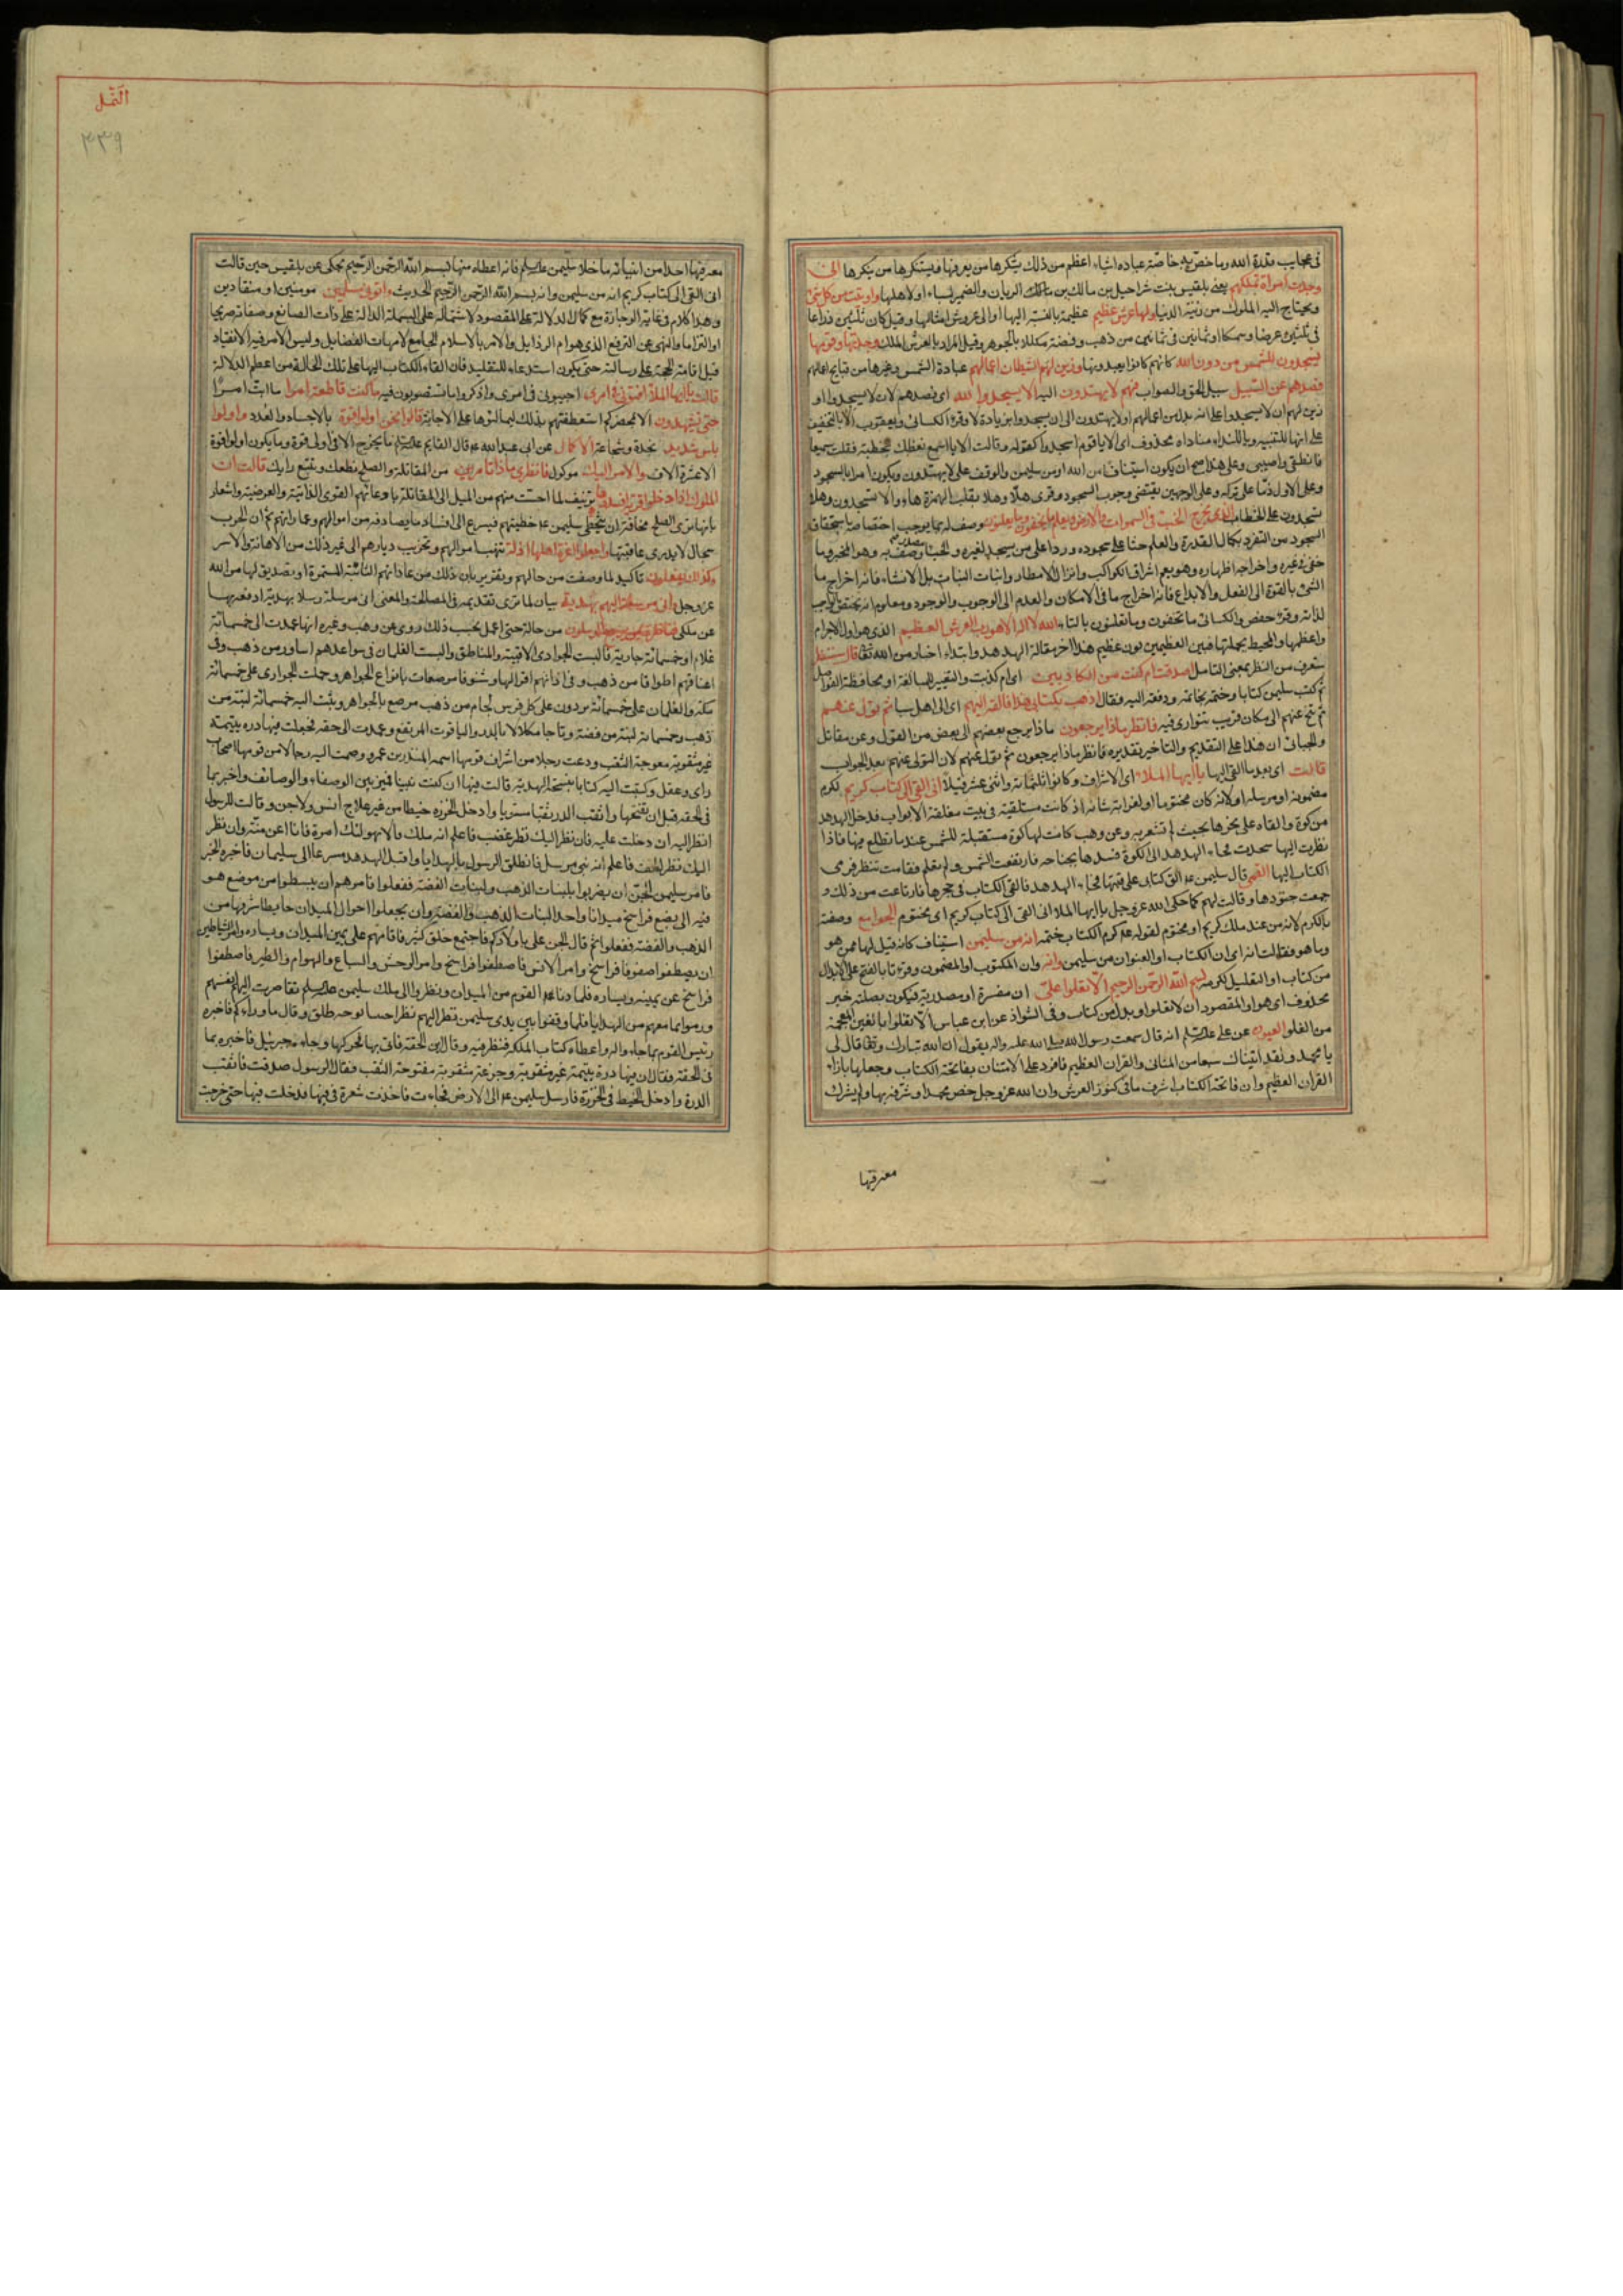 فى عجايب قدرة الله وما خص به خاصة عباده اشياء اعظم من ذلك يتكبرها من يعرفها ويستنكرها من ينكرها انى
وجدت امراة تملكهم يعنى بلقيس بنت شراحيل بن مالك بن الريان والضمير لسباء او لاهلها واوتيت من كل شئ
ويحتاج اليه الملوك من زينة الدنيا ولها عرش عظيم عظيمة بالنسبة اليها او الى عروش امثالها وقيل كان ثلثين ذراعا
فى ثلثين عرضا وسمكا او ثمانين فى ثمانين من ذهب وفضة مكللا بالجوهر وقيل المراد بالعرش الملك وجدتها وقومها
يسجدون للشمس من دون الله كانهم كانوا يعبدونها وزين لهم الشيطان اعمالهم عبادة الشمس وغيرها من قبايح اعمالهم
فصدهم عن السبيل سبيل الحق والصواب فهم لا يهتدون اليه الا يسجدوا لله اى فصدهم لان لا يسجدوا او
زين لهم ان لا يسجدوا على انه بدل من اعمالهم او لا يهتدون الى ان يسجدوا بزيادة لا وقرء الكسائى ويعقوب الا بالتخفيف
على انها للتنبيه ويا للنداء ومناداه محذوف اى الا يا قوم اسجدوا كقوله وقالت الا يا اسمع نعظك بخطبة فقلت سميعا
فانطقى واصيبى وعلى هذا صح ان يكون استينافا من الله او من سليمن والوقف على لا يهتدون ويكون امرا بالسجود
وعلى الاول ذما على تركه وعلى الوجهين يقتضى وجوب السجود وقرئ هلّا وهلا بقلب الهمزة هاء والا تسجدون وهلا
تسجدون على الخطاب الذى يخرج الخبء فى السموات والارض ويعلم ما يخفون وما يعلنون وصف له بما يوجب اختصاصه باستحقاق
السجود من التفرد بكمال القدرة والعلم حثا على سجوده وردا على من يسجد لغيره والخبا مصدر وصف به وهو المخبو وما
خفى فى غيره واخراجه اظهاره وهو يعم اشراق الكواكب وانزال الامطار وانبات النبات بل الانشاء فانه اخراج ما
الشئ بالقوة الى الفعل والابداع فانه اخراج ما فى الامكان والعدم الى الوجوب والوجود ومعلوم انه يختص بالواجب
لذاته وقرء حفص والكسائى ما تخفون وما تعلنون بالتاء الله لا اله الا هو رب العرش العظيم الذى هو اول الاجرام
واعظمها والمحيط بجملتها فبين العظيمين بون عظيم هذا اخر مقالة الهدهد وابتداء اخبار من الله تعالى قال سننظر
سنعرف من النظر بمعنى التامل اصدقت ام كنت من الكاذبين اى ام كذبت والتغيير للمبالغة او محافظة الفواصل
ثم كتب سليمن كتابا وختمه بخاتمه ودفعه اليه فقال اذهب بكتابى هذا فالقه اليهم اى الى اهل سبا ثم تول عنهم
ثم تنح عنهم الى مكان قريب تتوارى فيه فانظر ماذا يرجعون ماذا يرجع بعضهم الى بعض من القول وعن مقاتل
والجبائى ان هذا على التقديم والتاخير تقديره فانظر ماذا يرجعون ثم تول عنهم لان التولى عنهم بعد الجواب
قالت اى بعد ما القى اليها يا ايها الملاء اى الاشراف وكانوا ثلثمائة واثنى عشر قيلا انى القى الى كتاب كريم لكرم
مضمونه او مرسله او لانه كان مختوما او لغرابة شانه اذ كانت مستلقية فى بيت مغلقة الابواب فدخل الهدهد
من كوة والقاه على نحرها بحيث لم تشعر به وعن وهب كانت لها كوة مستقبلة للشمس عند ما تطلع فيها فاذا
نظرت اليها سجدت فجاء الهدهد الى الكوة فسدها بجناحه فارتفعت الشمس ولم تعلم فقامت تنظر فرمى
الكتاب اليها القمى قال سليمن عه الق كتابى على قبتها فجاء الهدهد فالقى الكتاب فى حجرها فارتاعت من ذلك و
جمعت جنودها وقالت لهم كما حكى الله عز وجل يا ايها الملا انى القى الى كتاب كريم اى مختوم الجوامع وصفته
بالكرم لانه من عند ملك كريم او مختوم لقوله عه كرم الكتاب ختمه انه من سليمن استيناف كانه قيل لها ممن هو
وما هو فقالت انه اى ان الكتاب او العنوان من سليمن وانه وان المكتوب او المضمون وقرءتا بالفتح على الابدال
من كتاب او التعليل لكرمه بسم الله الرحمن الرحيم الا تعلوا على ان مفسرة او مصدرية فيكون بصلته خبر
محذوف اى هو او المقصود ان لا تعلوا او بدل من كتاب وفى الشواذ عن ابن عباس الا تغلوا بالغين المعجمة
من الغلو العيون عن على عليه السلم انه قال سمعت رسول الله صلى الله عليه واله يقول ان الله تبارك وتعالى قال لى
يا محمد ولقد اتيناك سبعا من المثانى والقران العظيم فافرد على الامتنان بفاتحة الكتاب وجعلها بازاء
القران العظيم وان فاتحة الكتاب اشرف ما فى كنوز العرش وان الله عز وجل خص محمدا وشرفه بها ولم يشرك
معرفيها
النمل
٣٣٩
معه فيها احدا من انبيائه ما خلا سليمن عليه السلم فانه اعطاه منها بسم الله الرحمن الرحيم يحكى عن بلقيس حين قالت
انى القى الى كتاب كريم انه من سليمن وانه بسم الله الرحمن الرحيم الحديث واتونى مسلمين مومنين او منقادين
وهذا كلام فى غاية الوجازة مع كمال الدلالة على المقصود لاشتماله على البسملة الدالة على ذات الصانع وصفاته صريحا
او التزاما والنهى عن الترفع الذى هو ام الرذايل والامر بالاسلام الجامع لامهات الفضايل وليس الامر فيه الانقياد
قبل اقامة الحجة على رسالته حتى يكون استدعاء للتقليد فان القاء الكتاب اليها على تلك الحالة من اعظم الدلالة
قالت يا ايها الملا افتونى فى امرى اجيبونى فى امرى واذكروا ما تستصوبون فيه ما كنت قاطعة امرا ما ابت امرا
حتى تشهدون الا بمحضركم استعطفتهم بذلك ليمالئوها على الاجابة قالوا نحن اولوا قوة بالاجساد والعدد واولوا
باس شديد نجدة وشجاعة الاكمال عن ابى عبد الله عه قال القايم عليه السلم ما يخرج الا فى اولى قوة وما يكون اولوا قوة
الا عشرة الاف والامر اليك موكول فانظرى ماذا تامرين من المقاتلة والصلح نطعك ونتبع رايك قالت ان
الملوك اذا دخلوا قرية افسدوها تزييف لما احست منهم من الميل الى المقاتلة بادعائهم القوى الذاتية والعرضية واشعار
بانها ترى الصلح مخافة ان يتخطى سليمن عه خططهم فيسرع الى افساد ما يصادفه من اموالهم وعماراتهم ثم ان الحرب
سجال لا يدرى عاقبتها وجعلوا اعزة اهلها اذلة بنهب اموالهم وتخريب ديارهم الى غير ذلك من الاهانة والاسر
وكذلك يفعلون تاكيد لما وصفت من حالهم وتقرير بان ذلك من عاداتهم الثابتة المستمرة او تصديق لها من الله
عز وجل وانى مرسلة اليهم بهدية بيان لما ترى تقديمه فى المصالحة والمعنى انى مرسلة رسلا بهدية ادفعه بها
عن ملكى فناظرة بم يرجع المرسلون من حاله حتى اعمل بحسب ذلك روى عن وهب وغيره انها عمدت الى خمسمائة
غلام او خمسمائة جارية فالبست الجوارى الاقبية والمناطق والبست الغلمان فى سواعدهم اساور من ذهب وفى
اعناقهم اطواقا من ذهب وفى اذانهم اقراطا وشنوفا مرصعات بانواع الجواهر وحملت الجوارى على خمسمائة
رمكة والغلمان على خمسمائة برذون على كل فرس لجام من ذهب مرصع بالجواهر وبعثت اليه خمسمائة لبنة من
ذهب وخمسمائة لبنة من فضة وتاجا مكللا بالدر والياقوت المرتفع وعمدت الى حقة فجعلت فيها درة يتيمة
غير مثقوبة معوجة الثقب ودعت رجلا من اشراف قومها اسمه المنذر بن عمرو وضمت اليه رجالا من قومها اصحاب
راى وعقل وكتبت اليه كتابا بنسخة الهدية قالت فيها ان كنت نبيا فميز بين الوصفاء والوصائف واخبر بما
فى الحقة قبل ان تفتحها واثقب الدر ثقبا مستويا وادخل الخرزة خيطا من غير علاج انس ولا جن وقالت للرسول
انظر اليه ان دخلت عليه فان نظر اليك نظر غضب فاعلم انه ملك فلا يهولنك امره فانا اعز منه وان نظر
اليك نظر لطف فاعلم انه نبى مرسل فانطلق الرسول بالهدايا واقبل الهدهد مسرعا الى سليمان فاخبره الخبر
فامر سليمن الجن ان يضربوا لبنات الذهب ولبنات الفضة ففعلوا فامرهم ان يبسطوا من موضع هو
فيه الى بضع فراسخ ميدانا واحدا بلبنات الذهب والفضة وان يجعلوا حول الميدان حايطا شرفها من
الذهب والفضة ففعلوا ثم قال للجن على باولادكم فاجتمع خلق كثير فاقامهم على يمين الميدان ويساره وامر الشياطين
ان يصطفوا صفوفا فراسخ وامر الانس فاصطفوا فراسخ وامر الوحش والسباع والهوام والطير فاصطفوا
فراسخ عن يمينه ويساره فلما دنا القوم من الميدان ونظروا الى ملك سليمن عليه السلم تقاصرت اليهم انفسهم
ورموا بما معهم من الهدايا فلما وقفوا بين يدى سليمن نظر اليهم نظرا حسنا بوجه طلق وقال ما وراءكم فاخبره
رئيس القوم بما جاءوا له واعطاه كتاب الملكة فنظر فيه وقال اين الحقة فاتى بها فحركها وجاءه جبرئيل فاخبره بما
فى الحقة فقال ان فيها درة يتيمة غير مثقوبة وجزعة مثقوبة معوجة الثقب فقال الرسول صدقت فاثقب
الدرة وادخل الخيط فى الخرزة فارسل سليمن عه الى الارضة فجاءت فاخذت شعرة فى فيها فدخلت فيها حتى خرجت